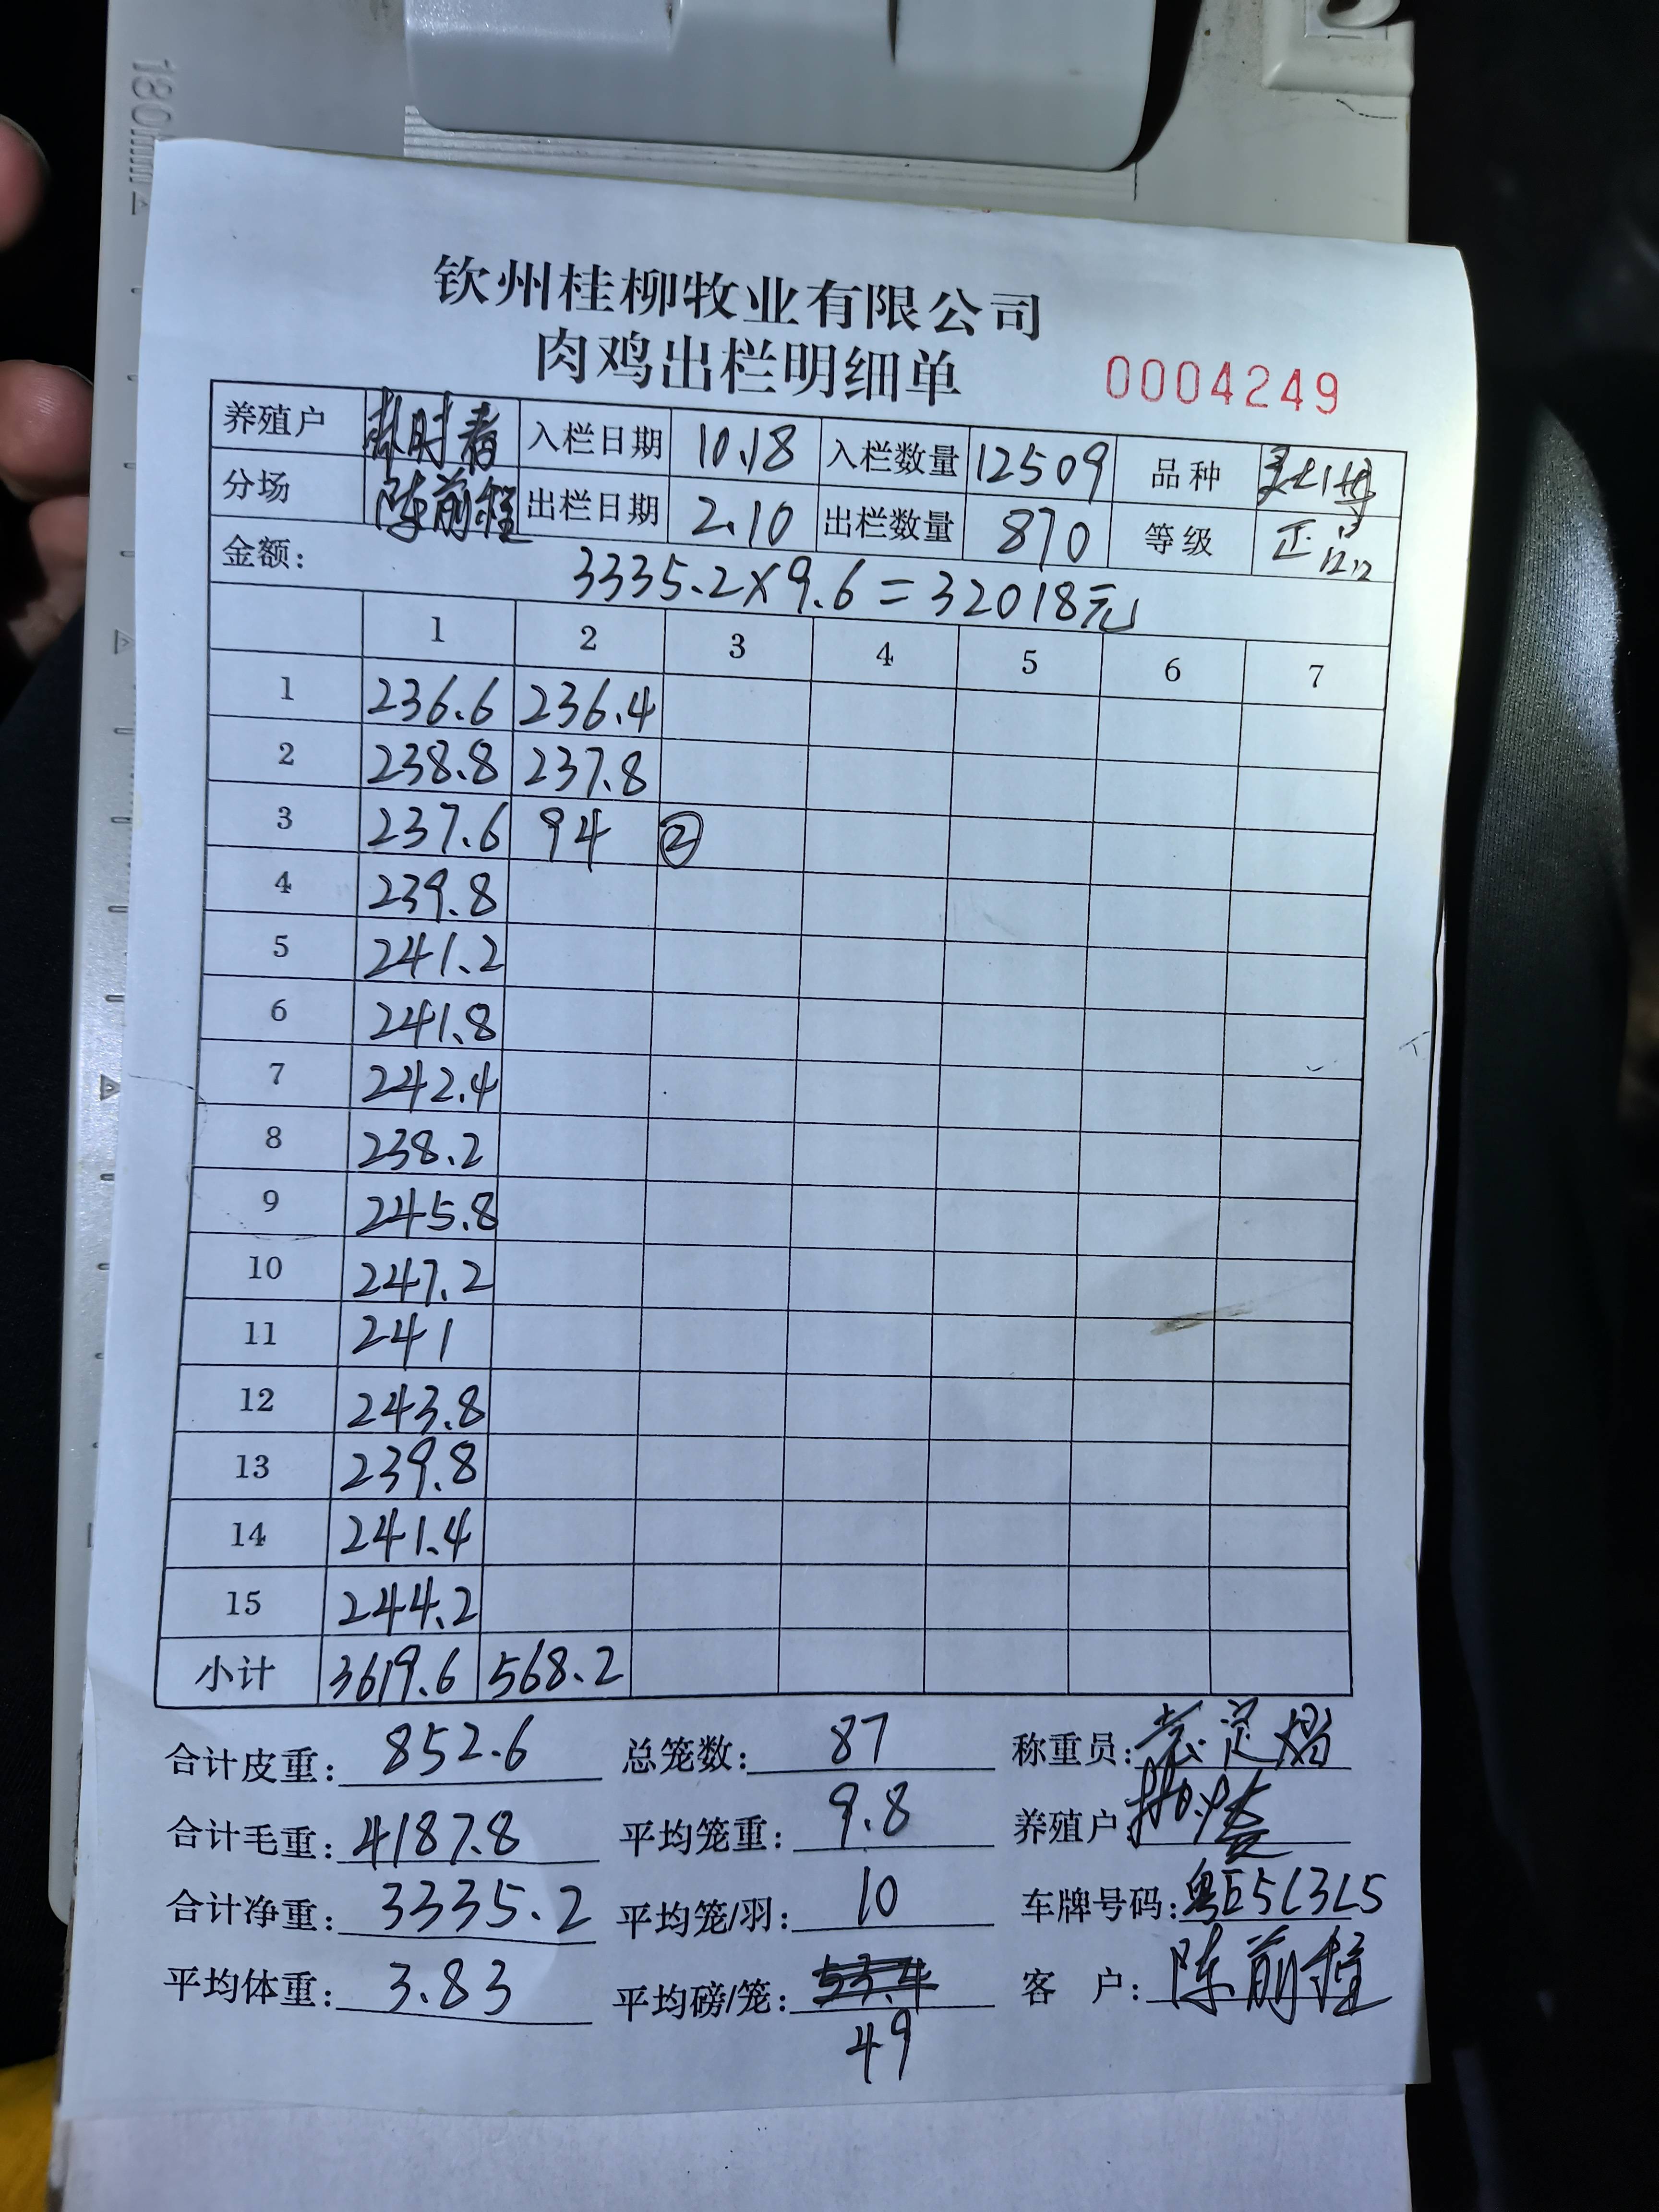 180mm
钦州桂柳牧业有限公司
肉鸡出栏明细单 0004249
养殖户 入栏日期 10.18 入栏数量 12509 品种
分场 陈前程 出栏日期 2.10 出栏数量 870 等级 正
金额: 3335.2×9.6=32018元
1 2 3 4 5 6 7
1 236.6 236.4
2 238.8 237.8
3 237.6 94 ②
4 239.8
5 241.2
6 241.8
7 242.4
8 238.2
9 245.8
10 247.2
11 241
12 243.8
13 239.8
14 241.4
15 244.2
小计 3619.6 568.2
合计皮重: 852.6 总笼数: 87 称重员:
合计毛重: 4187.8 平均笼重: 9.8 养殖户:
合计净重: 3335.2 平均笼/羽: 10 车牌号码: 粤E5L3L5
平均体重: 3.83 平均磅/笼: 53.4 客 户: 陈前程
49